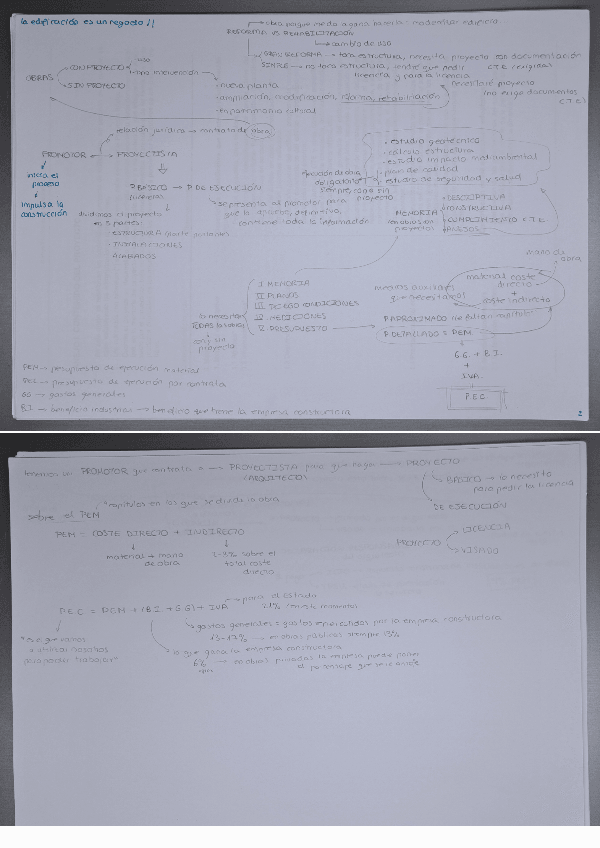 la edificación es un negocio !!
obra porque me da la gana hacerla: modernizar edificio
REFORMA VS REHABILITACIÓN
cambio de uso
GRAN REFORMA → toca estructura, necesita proyecto con documentación C.T.E.
SIMPLE → no toca estructura, tendré que pedir licencia y para la licencia necesitaré proyecto
(no exige documentos C.T.E)
OBRAS
CON PROYECTO
SIN PROYECTO
uso
tipo intervención
· nueva planta
· ampliación, modificación, reforma, rehabilitación
· en patrimonio cultural
relación jurídica → contrato de obra
PROMOTOR → PROYECTISTA
inicia el proceso
impulsa la construcción
BÁSICO → P. DE EJECUCIÓN
representa al promotor para que lo apruebe, definitiva,
contiene toda la información
dividimos el proyecto en 3 partes
· ESTRUCTURA
· INSTALACIONES
· ACABADOS
· estudio geotécnico
· cálculo estructura
· estudio impacto medioambiental
· plan de calidad
· estudio de seguridad y salud
MEMORIA
· DESCRIPTIVA
· CONSTRUCTIVA
· CUMPLIMIENTO C.T.E.
· ANEJOS
I MEMORIA
II PLANOS
III PLIEGO CONDICIONES
IV MEDICIONES
V PRESUPUESTO
medios auxiliares que necesitamos
mano de obra
material coste directo
+
coste indirecto
P. APROXIMADO
P. DETALLADO = PEM
+
G.G. + B.I.
+
IVA
P.E.C
PEM → presupuesto de ejecución material
PEC → presupuesto de ejecución por contrata
GG → gastos generales
B.I → beneficio industrial → beneficio que tiene la empresa constructora
2
tenemos un PROMOTOR que contrata a → PROYECTISTA para que haga → PROYECTO
(ARQUITECTO)
BÁSICO → lo necesito para pedir las licencias
DE EJECUCIÓN
sobre el PEM
* capítulos en los que se divide la obra
PROYECTO
LICENCIA
VISADO
PEM = COSTE DIRECTO + INDIRECTO
material + mano de obra
2-3% sobre el total coste directo
PEC = PEM + (B.I + GG) + IVA
para el Estado
21%
gastos generales = gastos ejercitados por la empresa constructora
13-17% → en obras públicas siempre 13%
lo que gana la empresa constructora
6% → en obras privadas la empresa puede poner el porcentaje que le convenga